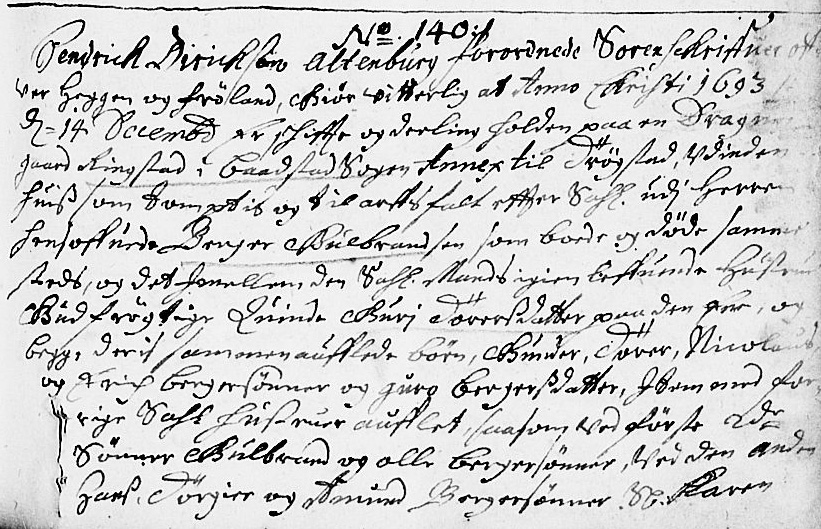 No. 140.
Hendrich Dirichsøn Altenburg forordnede Sorenschriffuer
ver Heggen og Frøland, Giør vitterlig at Anno Christi 1693
d= 14 Decembr Er schiffte og deeling holden paa en Dragon
gaard Ringstad i baadstad Sogen Annex til Trøgstad, Udi den
huuß som tomptis og til arffs falt effter Sahl. udj Herren
hensoffuede Berger Gulbrandsen som boede og døde samme
steds, og det Jmellem den Sahl. Mands igien leffuende
Gudfrøgtige Quinde Gurj Torersdatter paa den eene, og
begge deris sammenaufflede børn, Gunder, Torer, Nicolaus
og Erich bergersønner og guro bergersdatter, Jtem med for
rige Sahl hustruer aufflet, saasom Ved første 2de
Sønner Gulbrand og olle bergersønner, Ved den anden
Hans, Törgier og Amund Bergersønner Karen